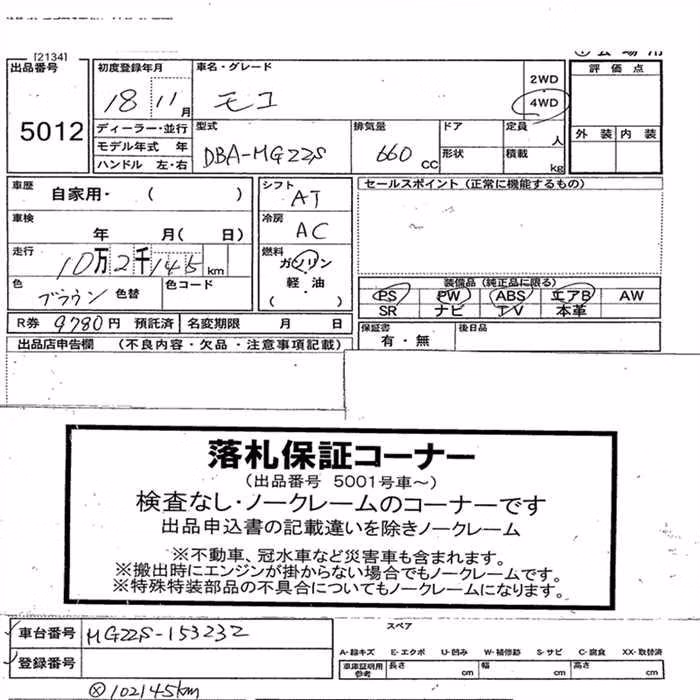 [2134]
出品番号 初度登録年月 車名・グレード 評価点
18 11月 モコ 2WD
4WD
5012 ディーラー・並行 型式 排気量 ドア 定員 人 外装 内装
モデル年式 年 DBA-MG22S 660 CC 形状 積載
ハンドル 左・右 kg
車歴 自家用・( ) シフト AT セールスポイント (正常に機能するもの)
車検 年 月( 日) 冷房 AC
走行 10万2千145km 燃料 ガソリン
色 ブラウン 色替 色コード 軽・油 装備品 (純正品に限る)
( ) PS PW ABS エアB AW
SR ナビ TV 本革
R券 9780円 預託済 名変期限 月 日 保証書 有・無 後日品
出品店申告欄 (不良内容・欠品・注意事項記載)
落札保証コーナー
(出品番号 5001号車～)
検査なし・ノークレームのコーナーです
出品申込書の記載違いを除きノークレーム
※不動車、冠水車など災害車も含まれます。
※搬出時にエンジンが掛からない場合でもノークレームです。
※特殊特装部品の不具合についてもノークレームになります。
車台番号 MG22S-153232 スペア
A-線キズ E-エクボ U-凹み W-補修跡 S-サビ C-腐食 XX-取替済
登録番号 車庫証明用参考 長さ cm 幅 cm 高さ cm
ⓧ102145km